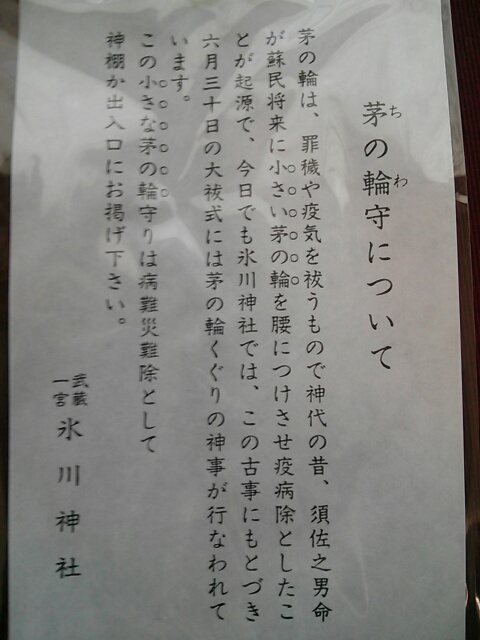 茅の輪守について
ち わ
茅の輪は、罪穢や疫気を祓うもので神代の昔、須佐之男命
が蘇民将来に小さい茅の輪を腰につけさせ疫病除としたこ
とが起源で、今日でも氷川神社では、この古事にもとづき
六月三十日の大祓式には茅の輪くぐりの神事が行なわれて
います。
この小さな茅の輪守りは病難災難除として
神棚か出入口にお掲げ下さい。
武蔵
一宮
氷川神社